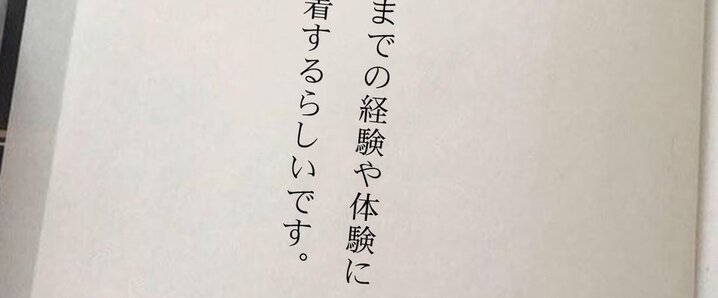 までの経験や体験に
着するらしいです。